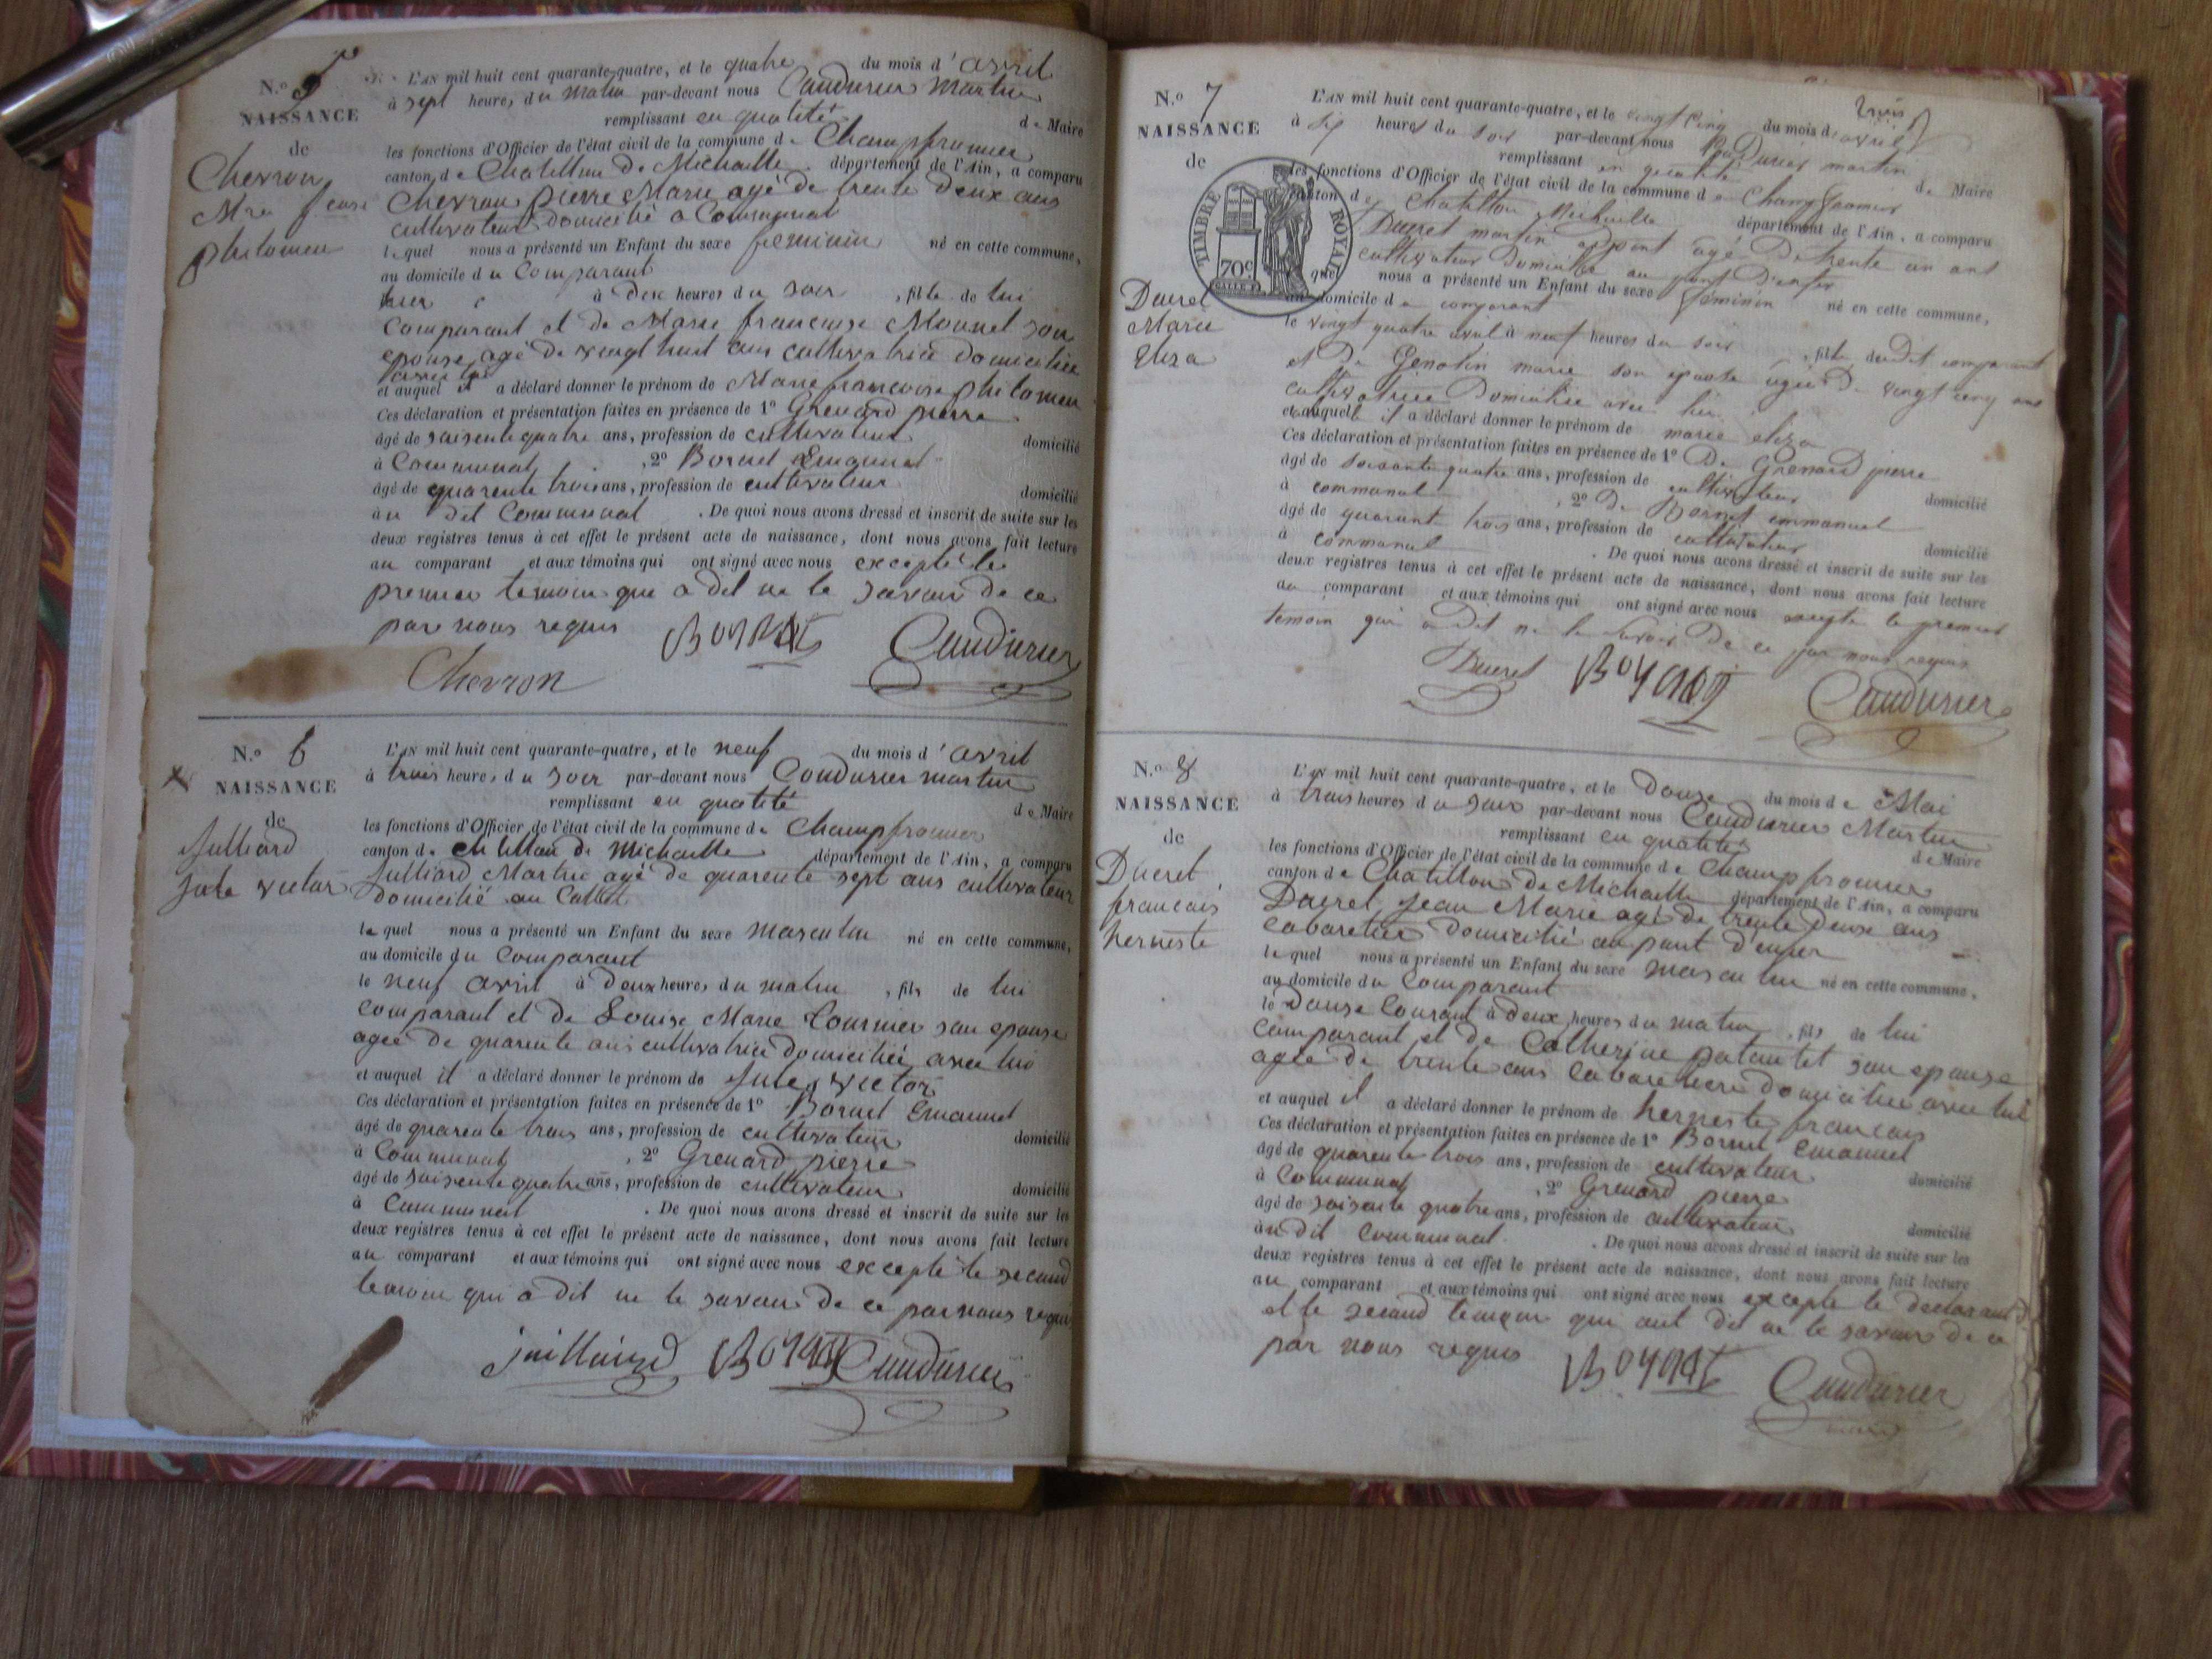 N.º 5
NAISSANCE
de
Chevron
Mie franse
philomen
L'AN mil huit cent quarante-quatre, et le quatre du mois d'avril
à sept heures du matin par-devant nous Coudurier Martin
remplissant en qualité de Maire
les fonctions d'Officier de l'état civil de la commune de Champfromier
canton de Chatillon de Michaille département de l'Ain, a comparu
Chevron pierre Marie agé de trente deux ans
cultivateur domicilié a Communal
lequel nous a présenté un Enfant du sexe feminin né en cette commune,
au domicile du Comparant
hier à dix heures du soir , fille de lui
Comparant et de Marie francoise Mounet son
epouse agé de vingt huit ans cultivatrice domiciliée
avec lui
et auquel il a déclaré donner le prénom de Marie francoise philomen
Ces déclaration et présentation faites en présence de 1º Grenard pierre
âgé de soisente quatre ans, profession de cultivateur domicilié
à Communal , 2º Bornet Emanuel
âgé de quarente trois ans, profession de cultivateur domicilié
au dit Communal . De quoi nous avons dressé et inscrit de suite sur les
deux registres tenus à cet effet le présent acte de naissance, dont nous avons fait lecture
au comparant et aux témoins qui ont signé avec nous excepté le
premier temoin que a dit ne le savoir de ce
par nous requis Bornet Coudurier
Chevron
N.º 6
NAISSANCE
de
Julliard
Jule victor
L'AN mil huit cent quarante-quatre, et le neuf du mois d'avril
à trois heures du soir par-devant nous Coudurier martin
remplissant en qualité de Maire
les fonctions d'Officier de l'état civil de la commune de Champfromier
canton de chatillon de Michaille département de l'Ain, a comparu
Julliard Martin agé de quarente sept ans cultivateur
domicilié au Collet
lequel nous a présenté un Enfant du sexe masculin né en cette commune,
au domicile du Comparant
le neuf avril à deux heures du matin , fils de lui
comparant et de Louise Marie Tournier son epouse
agée de quarente ans cultivatrice domiciliée avec lui
et auquel il a déclaré donner le prénom de Jules victor
Ces déclaration et présentation faites en présence de 1º Bornet Emanuel
âgé de quarente trois ans, profession de cultivateur domicilié
à Communal , 2º Grenard pierre
âgé de soisente quatre ans, profession de cultivateur domicilié
à Communal . De quoi nous avons dressé et inscrit de suite sur les
deux registres tenus à cet effet le présent acte de naissance, dont nous avons fait lecture
au comparant et aux témoins qui ont signé avec nous excepté le second
temoin qui a dit ne le savoir de ce par nous requis
juilliard Bornet Coudurier
N.º 7
NAISSANCE
de
Ducret
Marie
Eliza
TIMBRE ROYAL
70c
L'AN mil huit cent quarante-quatre, et le vingt cinq du mois d'avril
à six heures du soir par-devant nous Coudurier martin
remplissant en qualité de Maire
les fonctions d'Officier de l'état civil de la commune de Champfromier
canton de Chatillon Michaille département de l'Ain, a comparu
Ducret martin agé de trente un ans
cultivateur domicilié au pont d'enfer
quel nous a présenté un Enfant du sexe féminin né en cette commune,
au domicile du comparant
le vingt quatre avril à neuf heures du soir , fille dudit comparant
et de Genolin marie son epouse agée de vingt cinq ans
cultivatrice domiciliée avec lui
et auquel il a déclaré donner le prénom de marie eliza
Ces déclaration et présentation faites en présence de 1º De Grenard pierre
âgé de soixante quatre ans, profession de cultivateur domicilié
à communal , 2º De Bornet emmanuel
âgé de quarant trois ans, profession de cultivateur domicilié
à communal . De quoi nous avons dressé et inscrit de suite sur les
deux registres tenus à cet effet le présent acte de naissance, dont nous avons fait lecture
au comparant et aux témoins qui ont signé avec nous excepte le premier
temoin qui a dit ne le savoir de ce par nous requis
Ducret Bornet Coudurier
N.º 8
NAISSANCE
de
Ducret
francois
herneste
L'AN mil huit cent quarante-quatre, et le douse du mois de Mai
à trois heures du soir par-devant nous Coudurier Martin
remplissant en qualité de Maire
les fonctions d'Officier de l'état civil de la commune de Champfromier
canton de Chatillon de Michaille département de l'Ain, a comparu
Ducret Jean Marie agé de trente deux ans
cabaretier domicilié au pont d'enfer
lequel nous a présenté un Enfant du sexe masculin né en cette commune,
au domicile du Comparant
le douse Courant à deux heures du matin , fils de lui
Comparant et de Catherine patentet son epouse
agée de trente ans cabaretiere domiciliée avec lui
et auquel il a déclaré donner le prénom de herneste francois
Ces déclaration et présentation faites en présence de 1º Bornet Emanuel
âgé de quarente trois ans, profession de cultivateur domicilié
à Communal , 2º Grenard pierre
âgé de soisente quatre ans, profession de cultivateur domicilié
au dit Communal . De quoi nous avons dressé et inscrit de suite sur les
deux registres tenus à cet effet le présent acte de naissance, dont nous avons fait lecture
au comparant et aux témoins qui ont signé avec nous excepte le declarant
et le second temoin qui ont dit ne le savoir de ce
par nous requis Bornet Coudurier